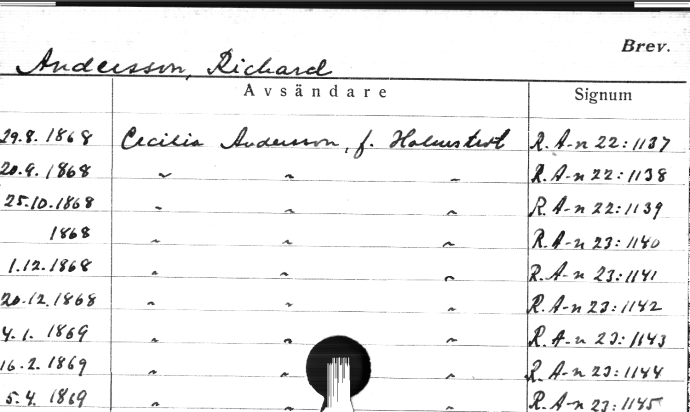 Brev.
Andersson, Richard
Avsändare Signum
29.8. 1868 Cecilia Andersson, f. Holmstedt R. A-n 22:1137
20.9. 1868 " " " R. A-n 22:1138
25.10.1868 " " " R. A-n 22:1139
1868 " " " R. A-n 23:1140
1.12.1868 " " " R. A-n 23:1141
20.12.1868 " " " R. A-n 23:1142
4.1. 1869 " " " R. A-n 23:1143
16.2. 1869 " " R. A-n 23:1144
5.4. 1869 " " R. A-n 23:1145